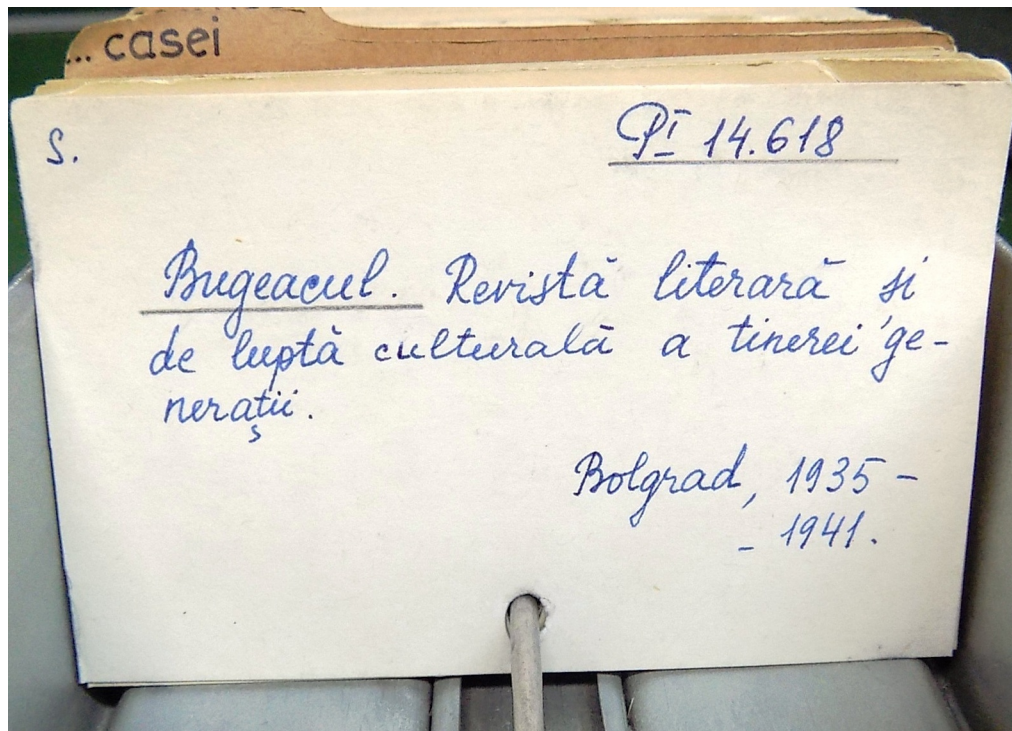 ... casei
S.
PI 14.618
Bugeacul. Revistă literară și
de luptă culturală a tinerei ge-
nerații.
Bolgrad, 1935 -
- 1941.